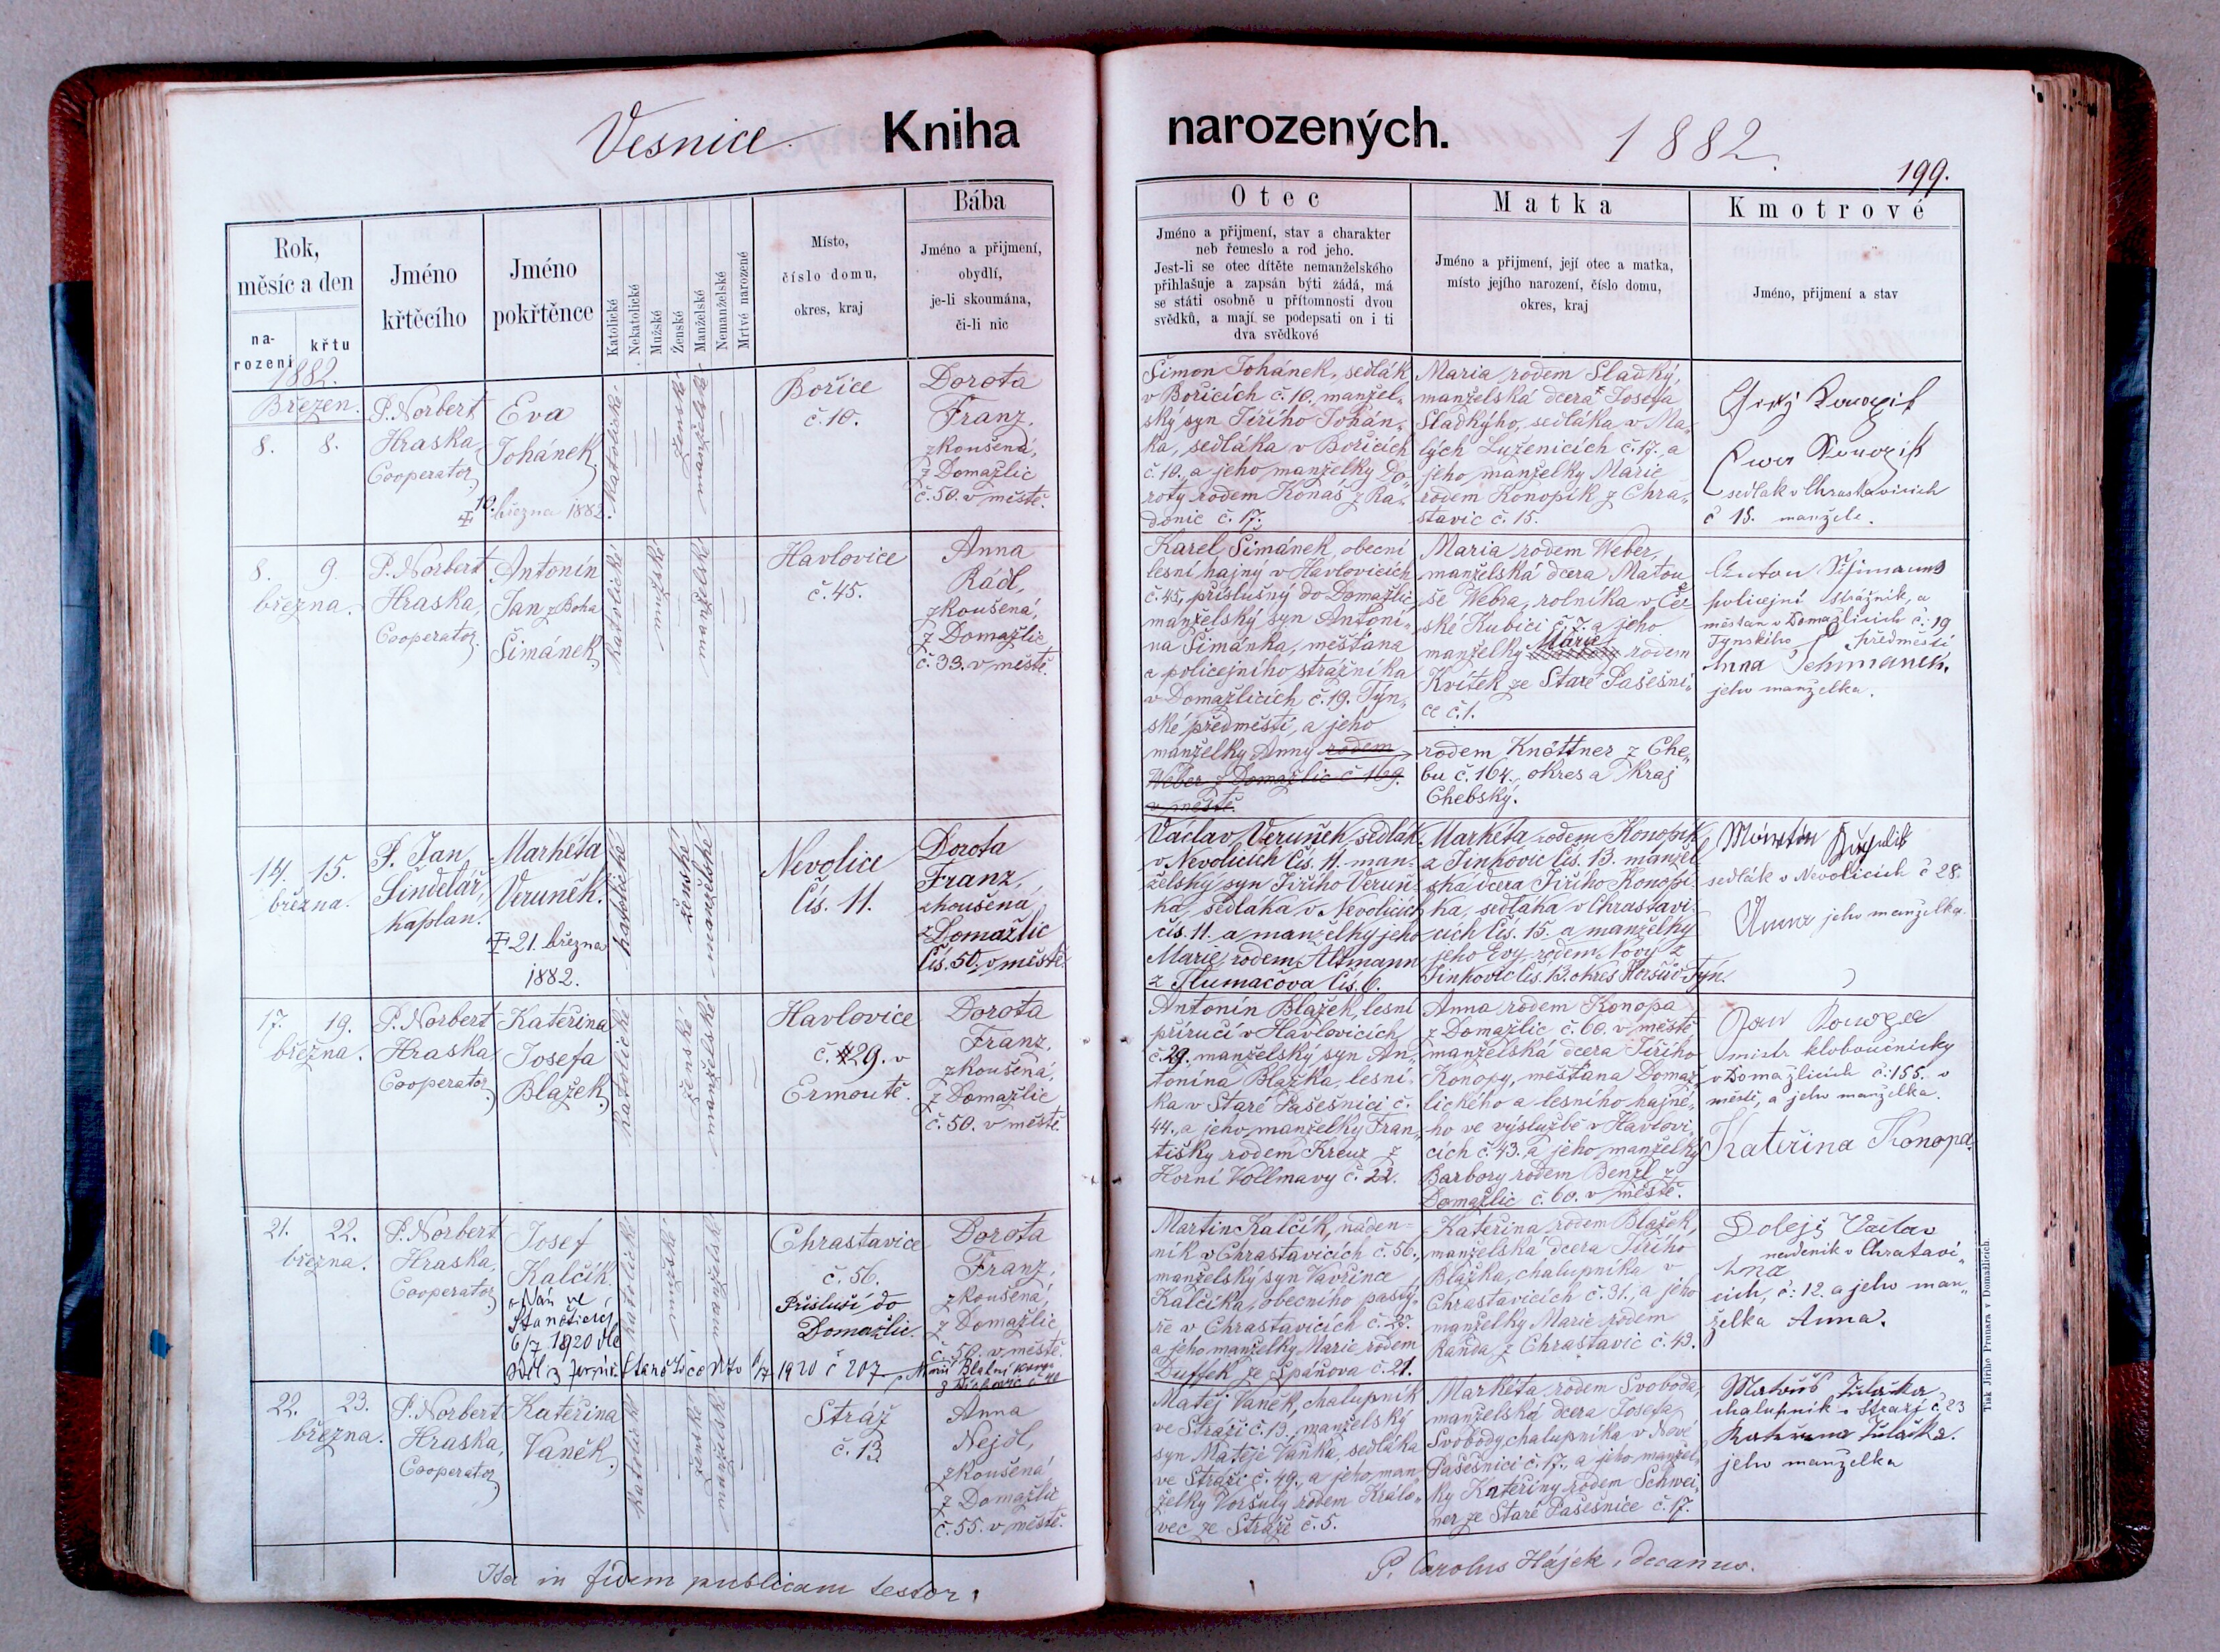 Vesnice Kniha narozených. 1882.
199.
Rok,
měsíc a den
na-
rození
křtu
1882.
Jméno
křtěcího
Jméno
pokřtěnce
Katolické
Nekatolické
Mužské
Ženské
Manželské
Nemanželské
Mrtvě narozené
Místo,
číslo domu,
okres, kraj
Bába
Jméno a přijmení,
obydlí,
je-li skoumána,
či-li nic
Otec
Jméno a přijmení, stav a charakter
neb řemeslo a rod jeho.
Jest-li se otec dítěte nemanželského
přihlašuje a zapsán býti žádá, má
se státi osobně u přítomnosti dvou
svědků, a mají se podepsati on i ti
dva svědkové
Matka
Jméno a přijmení, její otec a matka,
místo jejího narození, číslo domu,
okres, kraj
Kmotrové
Jméno, přijmení a stav
Březen.
8. 8.
P. Norbert
Hraska,
Cooperator
Eva
Johánek
10. března 1882.
katolické
ženské
manželské
Bořice
č. 10.
Dorota
Franz,
zkoušená,
z Domažlic
č. 50. v městě.
Šimon Johánek, sedlák
v Bořicích č. 10. manžel-
ský syn Jiřího Johán-
ka, sedláka v Bořicích
č. 10., a jeho manželky Do-
roty rodem Konáš z Ra-
donic č. 17.
Maria rodem Sladký,
manželská dcera Josefa
Sladkýho, sedláka v Ma-
lých Luženicích č. 17., a
jeho manželky Marie
rodem Konopík z Chra-
stavic č. 15.
sedlák v Chrastavicích
č 15. manželé.
8. 9.
března.
P. Norbert
Hraska,
Cooperator.
Antonín
Jan z Boha
Šimánek
katolické
mužské
manželské
Havlovice
č. 45.
Anna
Rádl,
zkoušená,
z Domažlic
č. 33. v městě.
Karel Šimánek, obecní
lesní hajný v Havlovicích
č. 45, příslušný do Domažlic
manželský syn Antoní-
na Šimánka, měšťana
a policejního strážníka
v Domažlicích č. 19. Týn-
ské předměstí, a jeho
manželky Anny rodem
Weber z Domažlic č 169.
v městě.
Maria rodem Weber,
manželská dcera Matou-
še Webra, rolníka v Če-
ské Kubici č. 7. a jeho
manželky Marie rodem
Kvítek ze Staré Pašešni-
ce č. 1.
rodem Knöttner z Che-
bu č. 164., okres a kraj
Chebský.
policejní strážník, a
měšťan v Domažlicích č: 19
Týnského předměstí
Anna Schimanek,
jeho manželka.
14. 15.
března.
P. Jan
Šindelář,
kaplan.
Markéta
Veruněk.
21. března
1882.
katolické
ženské
manželské
Nevolice
čís. 11.
Dorota
Franz,
zkoušená
z Domažlic
čís. 50. v městě.
Václav Veruněk, sedlák
v Nevolicích čís. 11. man-
želský syn Jiřího Veruň-
ka, sedláka v Nevolicích
čís. 11. a manželky jeho
Marie, rodem Altmann
z Tlumačova čís. 6.
Markéta rodem Konopík
z Jinkovic čís. 13. manžel-
ská dcera Jiřího Konopí-
ka, sedláka v Chrastavi-
cích čís. 15. a manželky
jeho Evy rodem Nový z
Jinkovic čís. 13. okres Horšův-Týn.
sedlák v Nevolicích č 28.
Anna jeho manželka.
17. 19.
března.
P. Norbert
Hraska
Cooperator
Kateřina
Josefa
Blažek
katolické
ženské
manželské
Havlovice
č. 29. v
Ermoutě.
Dorota
Franz,
zkoušená,
z Domažlic
č. 50. v městě.
Antonín Blažek, lesní
příručí v Havlovicích
č. 29. manželský syn An-
tonína Blažka, lesní-
ka v Staré Pašešnici č.
44., a jeho manželky Fran-
tišky rodem Kreuz z
Horní Vollmavy č. 22.
Anna rodem Konopa
z Domažlic č. 60. v městě
manželská dcera Jiřího
Konopy, měšťana Domaž-
lického a lesního hajné-
ho ve výslužbě v Havlovi-
cích č. 43. a jeho manželky
Barbory rodem Benzl z
Domažlic č. 60. v městě.
mistr kloboučnický
v Domažlicích č: 155. v
městě, a jeho manželka.
Kateřina Konopa.
21. 22.
března.
P. Norbert
Hraska,
Cooperator
Josef
Kalčík.
6/7 1920
katolické
mužské
manželské
Chrastavice
č. 56.
Přísluší do
Domažlic.
1920 č 207
Dorota
Franz,
zkoušená,
z Domažlic
č. 50. v městě.
Martin Kalčík, náden-
ník v Chrastavicích č. 56.,
manželský syn Vavřince
Kalčíka, obecního pastý-
ře v Chrastavicích č. 27.
a jeho manželky Marie rodem
Duffek ze Spáňova č. 21.
Kateřina rodem Blažek,
manželská dcera Jiřího
Blažka, chalupníka v
Chrastavicích č. 31., a jeho
manželky Marie rodem
Kanda z Chrastavic č. 49.
Dolejš Václav
nádeník v Chrastavi-
cích, č: 12. a jeho man-
želka Anna.
22. 23.
března.
P. Norbert
Hraska,
Cooperator
Kateřina
Vaněk
katolické
ženské
manželské
Stráž
č. 13
Anna
Nejdl,
zkoušená
z Domažlic
č. 55. v městě.
Matěj Vaněk, chalupník
ve Stráži č. 13., manželský
syn Matěje Vaňka, sedláka
ve Stráži č. 49., a jeho man-
želky Voršuly rodem Králo-
vec ze Stráže č. 5.
Markéta rodem Svoboda,
manželská dcera Josefa
Svobody, chalupníka v Nové
Pašešnici č. 17., a jeho manžel-
ky Kateřiny rodem Schwei-
ner ze Staré Pašešnice č. 17.
chalupník v Stráži č. 23
jeho manželka
Ita in fidem publicam testor
P. Carolus Hájek, decanus.
Tisk Jiřího Prunara v Domažlicích.